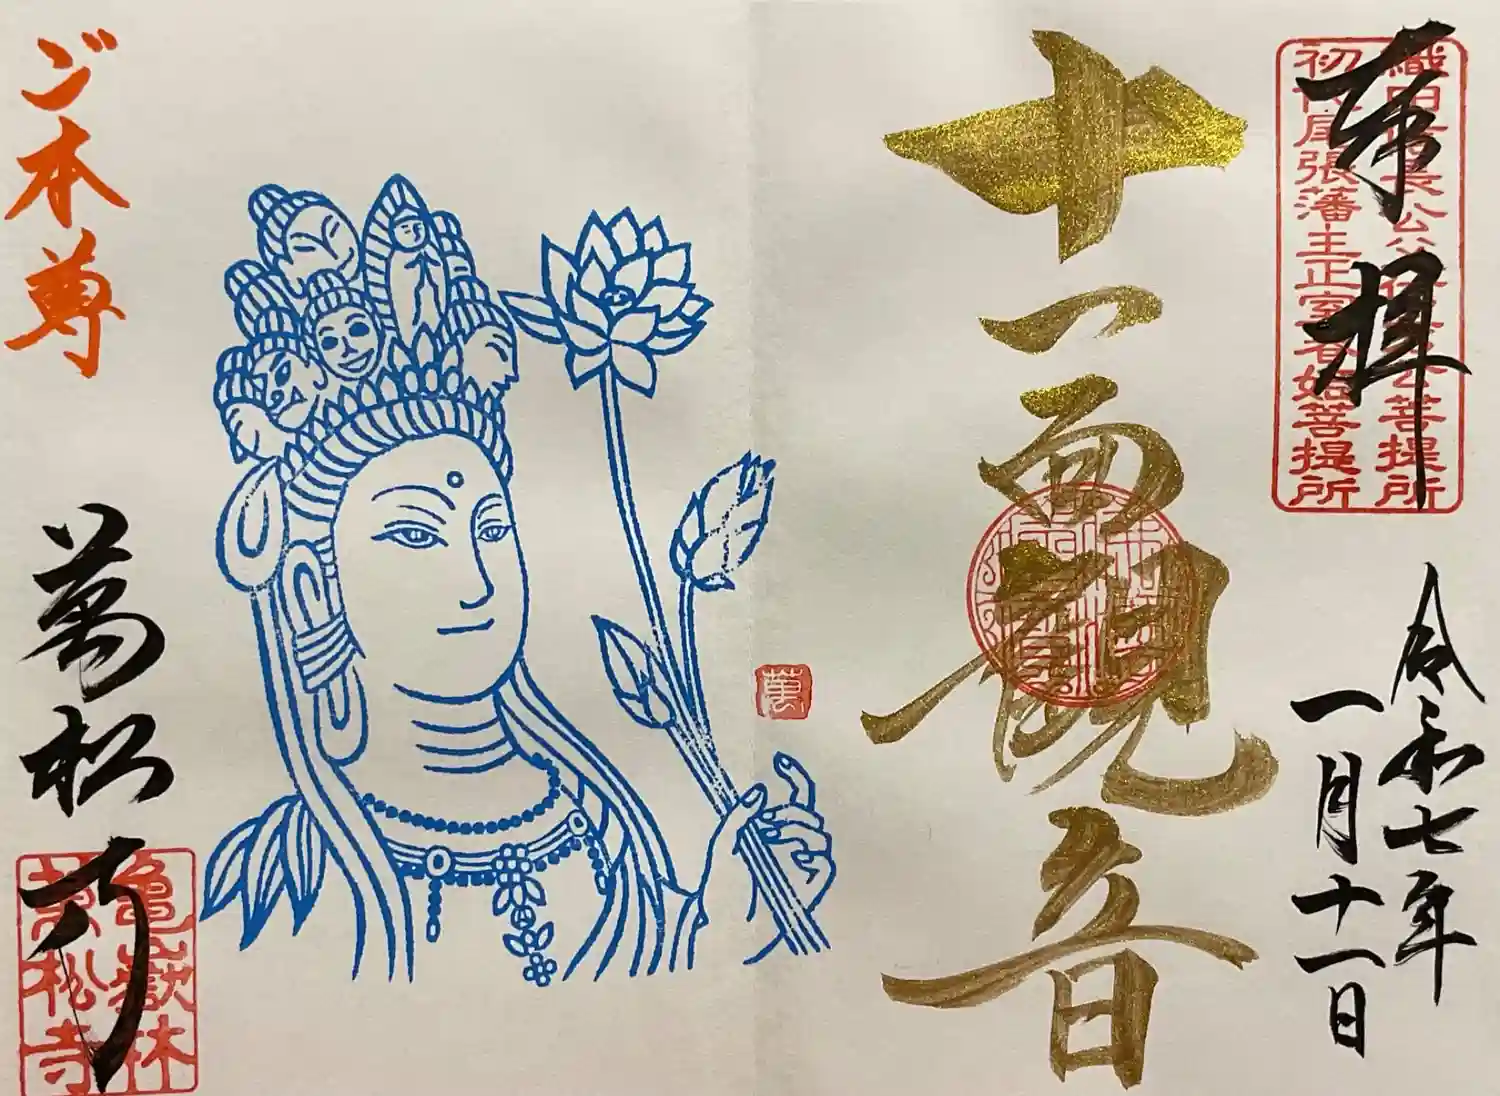 奉拝
織田信長公公父信秀公菩提所
初代尾張藩主正室春姫菩提所
令和七年
一月十一日
十一面観音
萬
ご本尊
萬松寺
亀嶽林
萬松寺